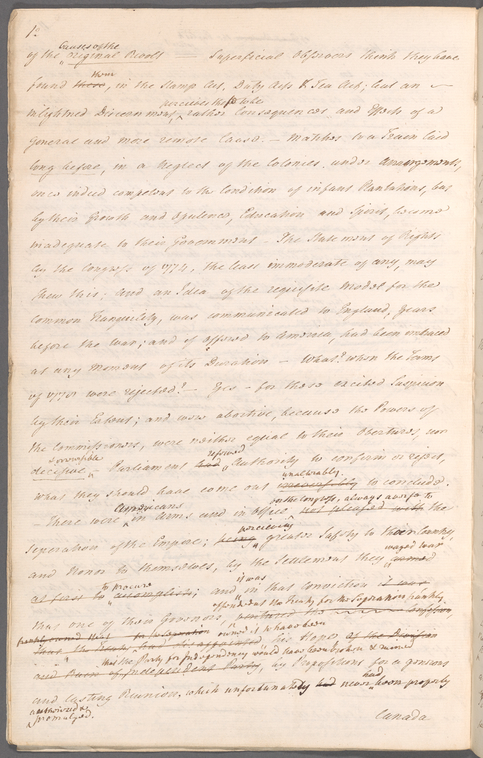 1.
causes of the
of the original Revolt — Superficial Observers think they have
them
found these, in the Stamp Act, Duty Acts & Tea Act; but an
perceives these to be
inlightned Discernment, rather Consequences and Effects of a
general and more remote Cause. — Matches to a Train laid
long before, in a Neglect of the Colonies, under Arrangements,
once indeed competent to the Condition of infant Plantations, but
by their Growth and Opulence, Education and Spirit, become
inadequate to their Government — The Statement of Rights
by the Congress of 1774, the least immoderate of any, may
shew this; and an Idea of the requisite Model for the
common Tranquility, was communicated to England, Years
before the War; and if offered to America, had been embraced
at any Moment of its Duration — What! when the Terms
of 1778 were rejected! — Yes — for these excited Suspicion
by their Extent; and were abortive, because the Powers of
the Commissioners, were neither equal to their Overtures, nor
irrevocable
decisive — Parliament had reserved Authority to confirm or reject,
unalterably
what they should have come out to conclude.
Americans on the Congress, always averse to
There were in Arms and in Office not pleased with the
perceiving
Seperation of the Empire; being greater Safety to their Country,
waged War
and Honor to themselves, by the Settlement they
to procure it was
at first to accomplish; and in that Conviction it was
offended at the Treaty for the Seperation frankly
that one of their Governors,
owned it to have been
his Hopes of the Division
that the Party for Independency would have been broken & moved
and Ruin of Independent Party, by Propositions for a generous
had
and lasting Reunion, which unfortunately had never been properly
authorized &
promulged.
Canada